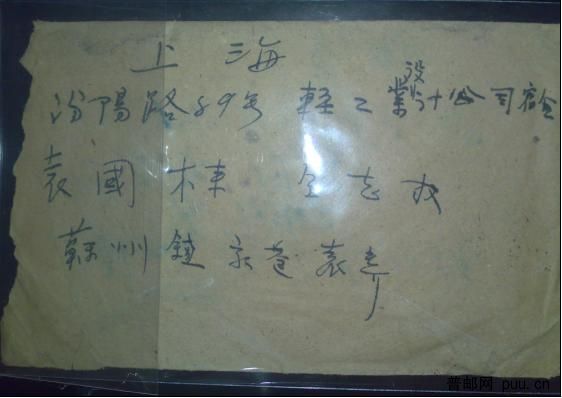 上海
汾陽路89号 輕工業設计公司宿舍
袁國棟 仝志收
蘇州 巷袁
普邮网 puu.cn